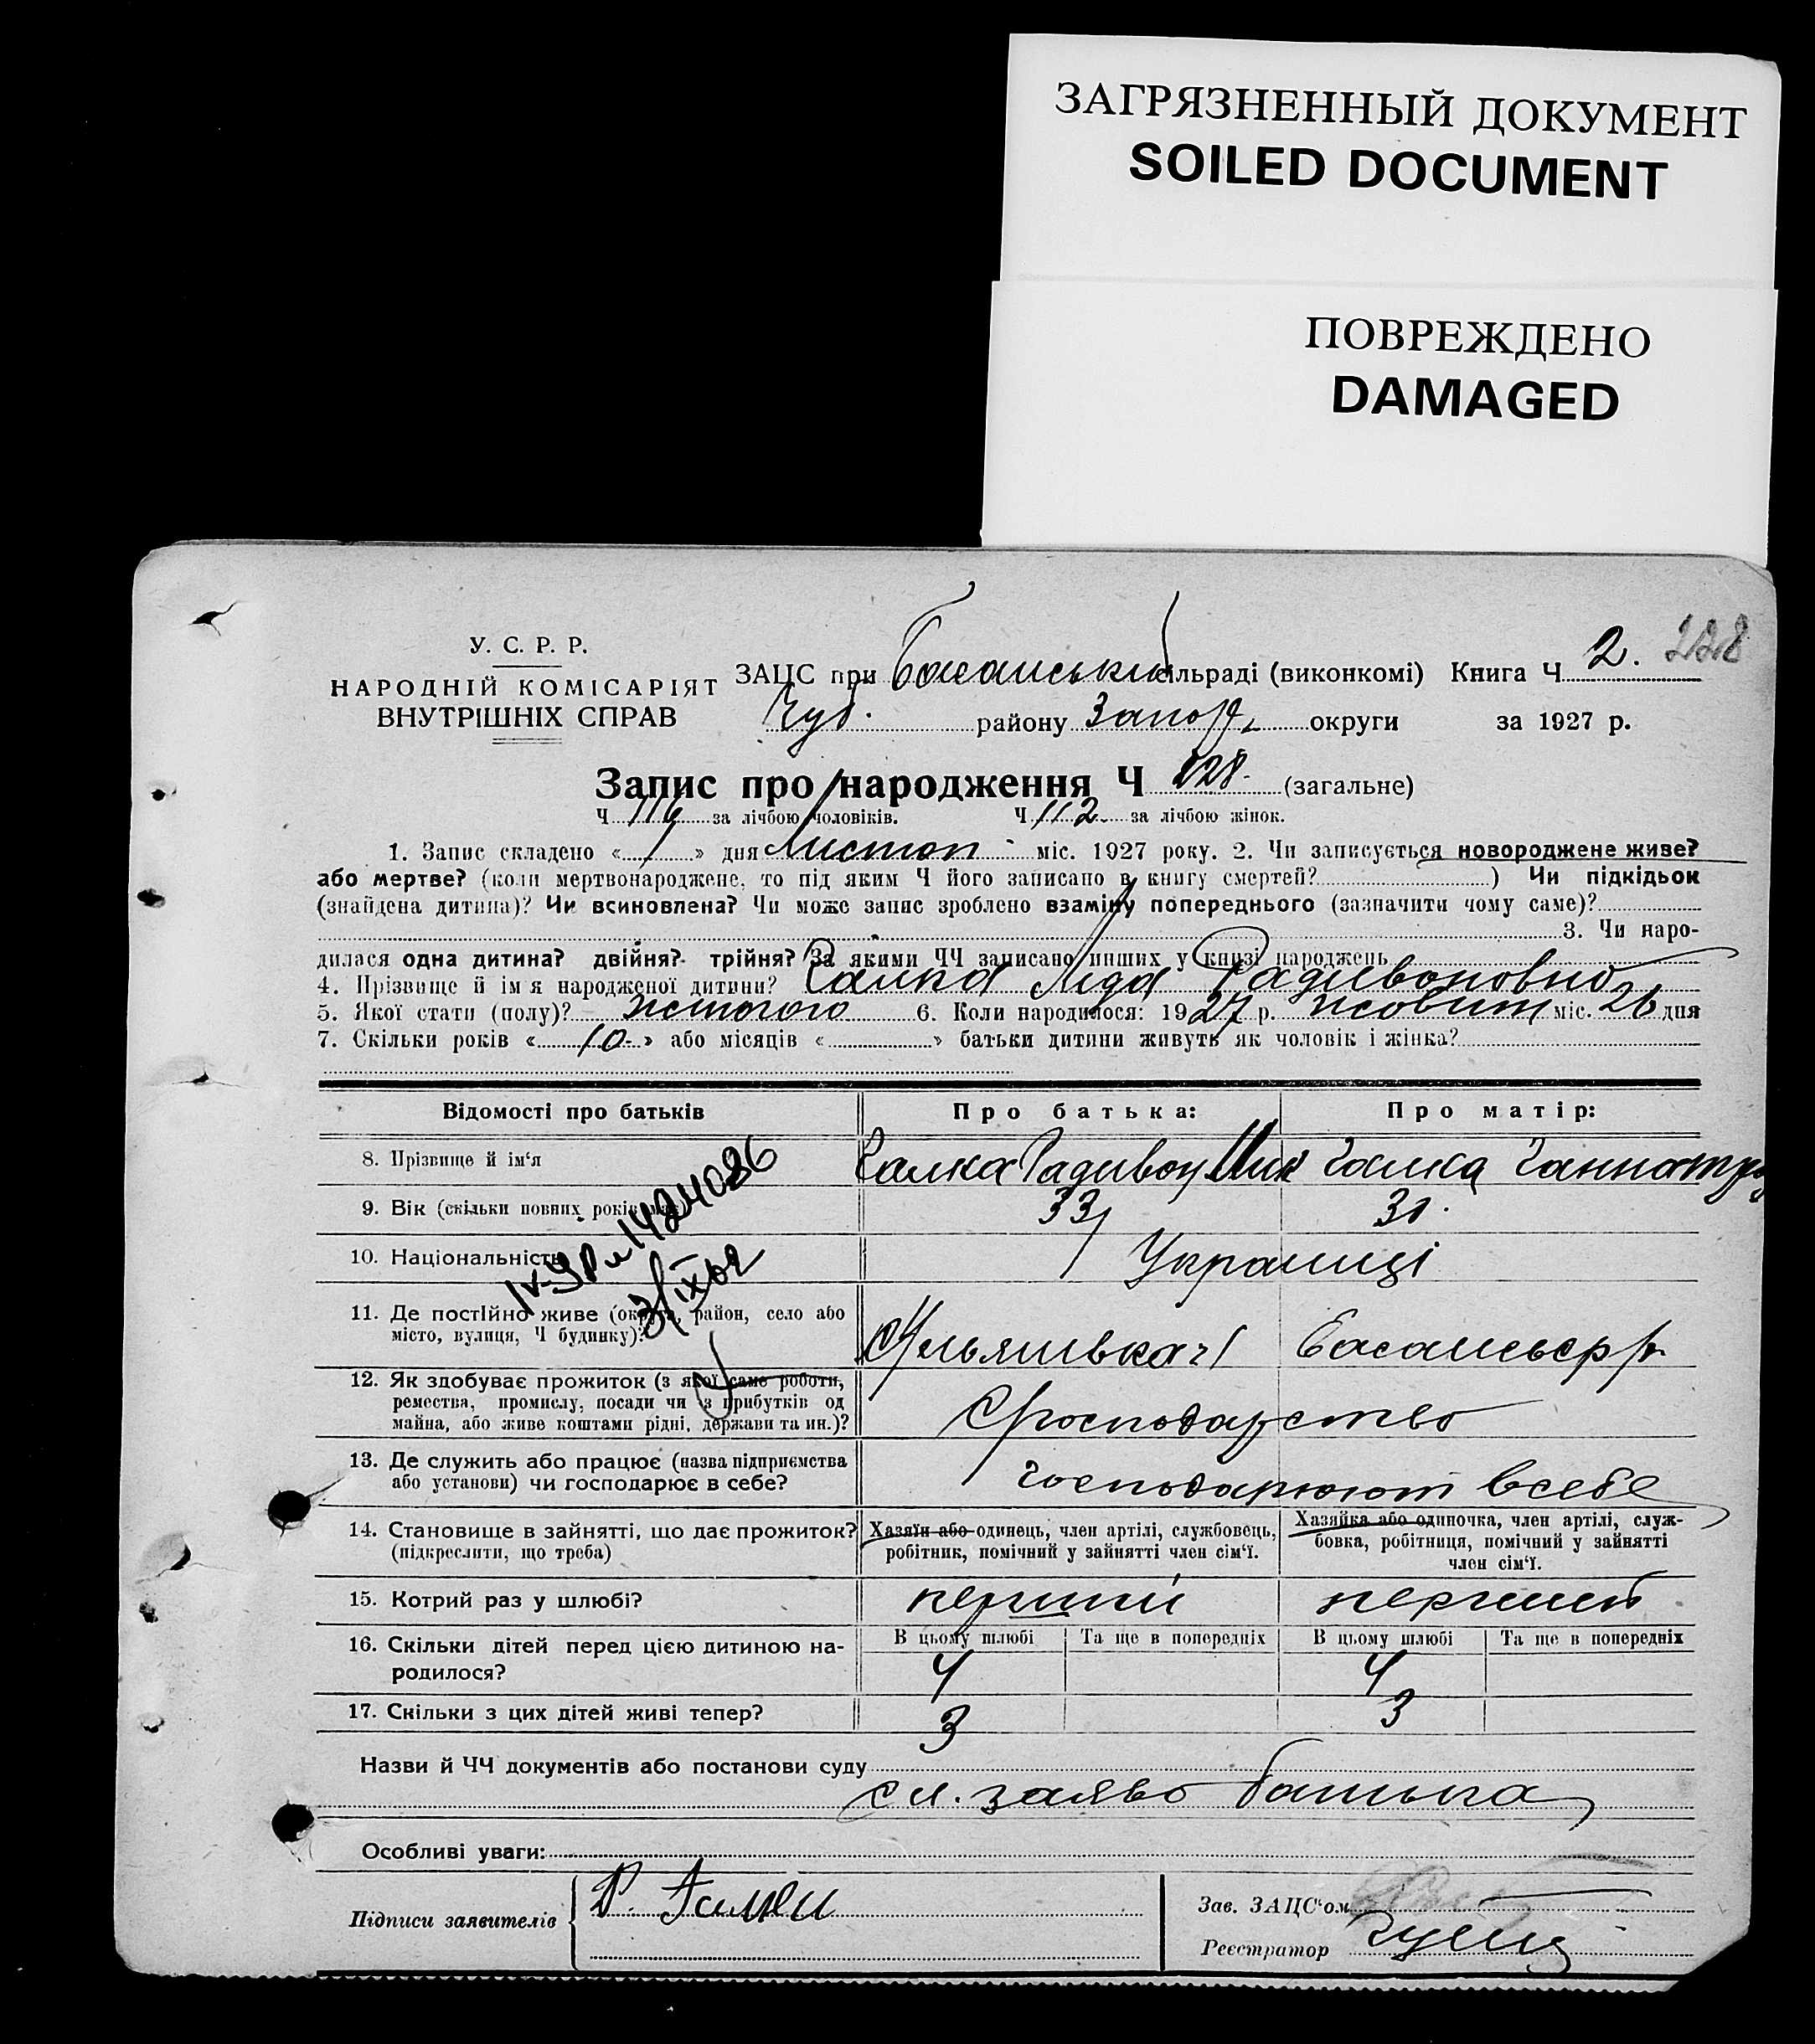 ЗАГРЯЗНЕННЫЙ ДОКУМЕНТ
SOILED DOCUMENT
ПОВРЕЖДЕНО
DAMAGED
228
У. С. Р. Р.
НАРОДНІЙ КОМІСАРІЯТ
ВНУТРІШНІХ СПРАВ
ЗАЦС при Басанській сільраді (виконкомі) Книга Ч 2.
Чуб. району Запор. округи за 1927 р.
Запис про народження Ч 228. (загальне)
Ч 116 за лічбою чоловіків. Ч 112 за лічбою жінок.
1. Запис складено « 1 » дня Листоп міс. 1927 року. 2. Чи записується новороджене живе?
або мертве? (коли мертвонароджене, то під яким Ч його записано в книгу смертей? ) Чи підкідьок
(знайдена дитина)? Чи всиновлена? Чи може запис зроблено взаміну попереднього (зазначити чому саме)?
3. Чи наро-
дилася одна дитина? двійня? трійня? За якими ЧЧ записано инших у книзі народжень
4. Прізвище й ім я народженої дитини? Галка Ліда Радивоновно
5. Якої стати (полу)? жіночого 6. Коли народилося: 1927 р. жовтт міс. 26 дня
7. Скільки років « 10 » або місяців « » батьки дитини живуть як чоловік і жінка?
Відомості про батьків Про батька: Про матір:
8. Прізвище й ім'я Галка Радивон Мик Галка Ганна
9. Вік (скільки повних років має) 33 31.
10. Національність Українці
1424086
11. Де постійно живе (округа, район, село або
місто, вулиця, Ч будинку)? Ульянівка
12. Як здобуває прожиток (з якої саме роботи,
ремества, промислу, посади чи з прибутків од
майна, або живе коштами рідні, держави та ин.)? Господарство
13. Де служить або працює (назва підприємства
або установи) чи господарює в себе? господарюют всебе
14. Становище в зайнятті, що дає прожиток?
(підкреслити, що треба)
Хазяїн або одинець, член артілі, службовець,
робітник, помічний у зайнятті член сім'ї.
Хазяйка або одиночка, член артілі, служ-
бовка, робітниця, помічний у зайнятті
член сім'ї.
15. Котрий раз у шлюбі? перший перший
16. Скільки дітей перед цією дитиною на-
родилося?
В цьому шлюбі Та ще в попередніх В цьому шлюбі Та ще в попередніх
4 4
17. Скільки з цих дітей живі тепер? 3 3
Назви й ЧЧ документів або постанови суду
сл. заяво батька
Особливі уваги:
Підписи заявителів Р. Галка
Зав. ЗАЦС'ом
Реєстратор